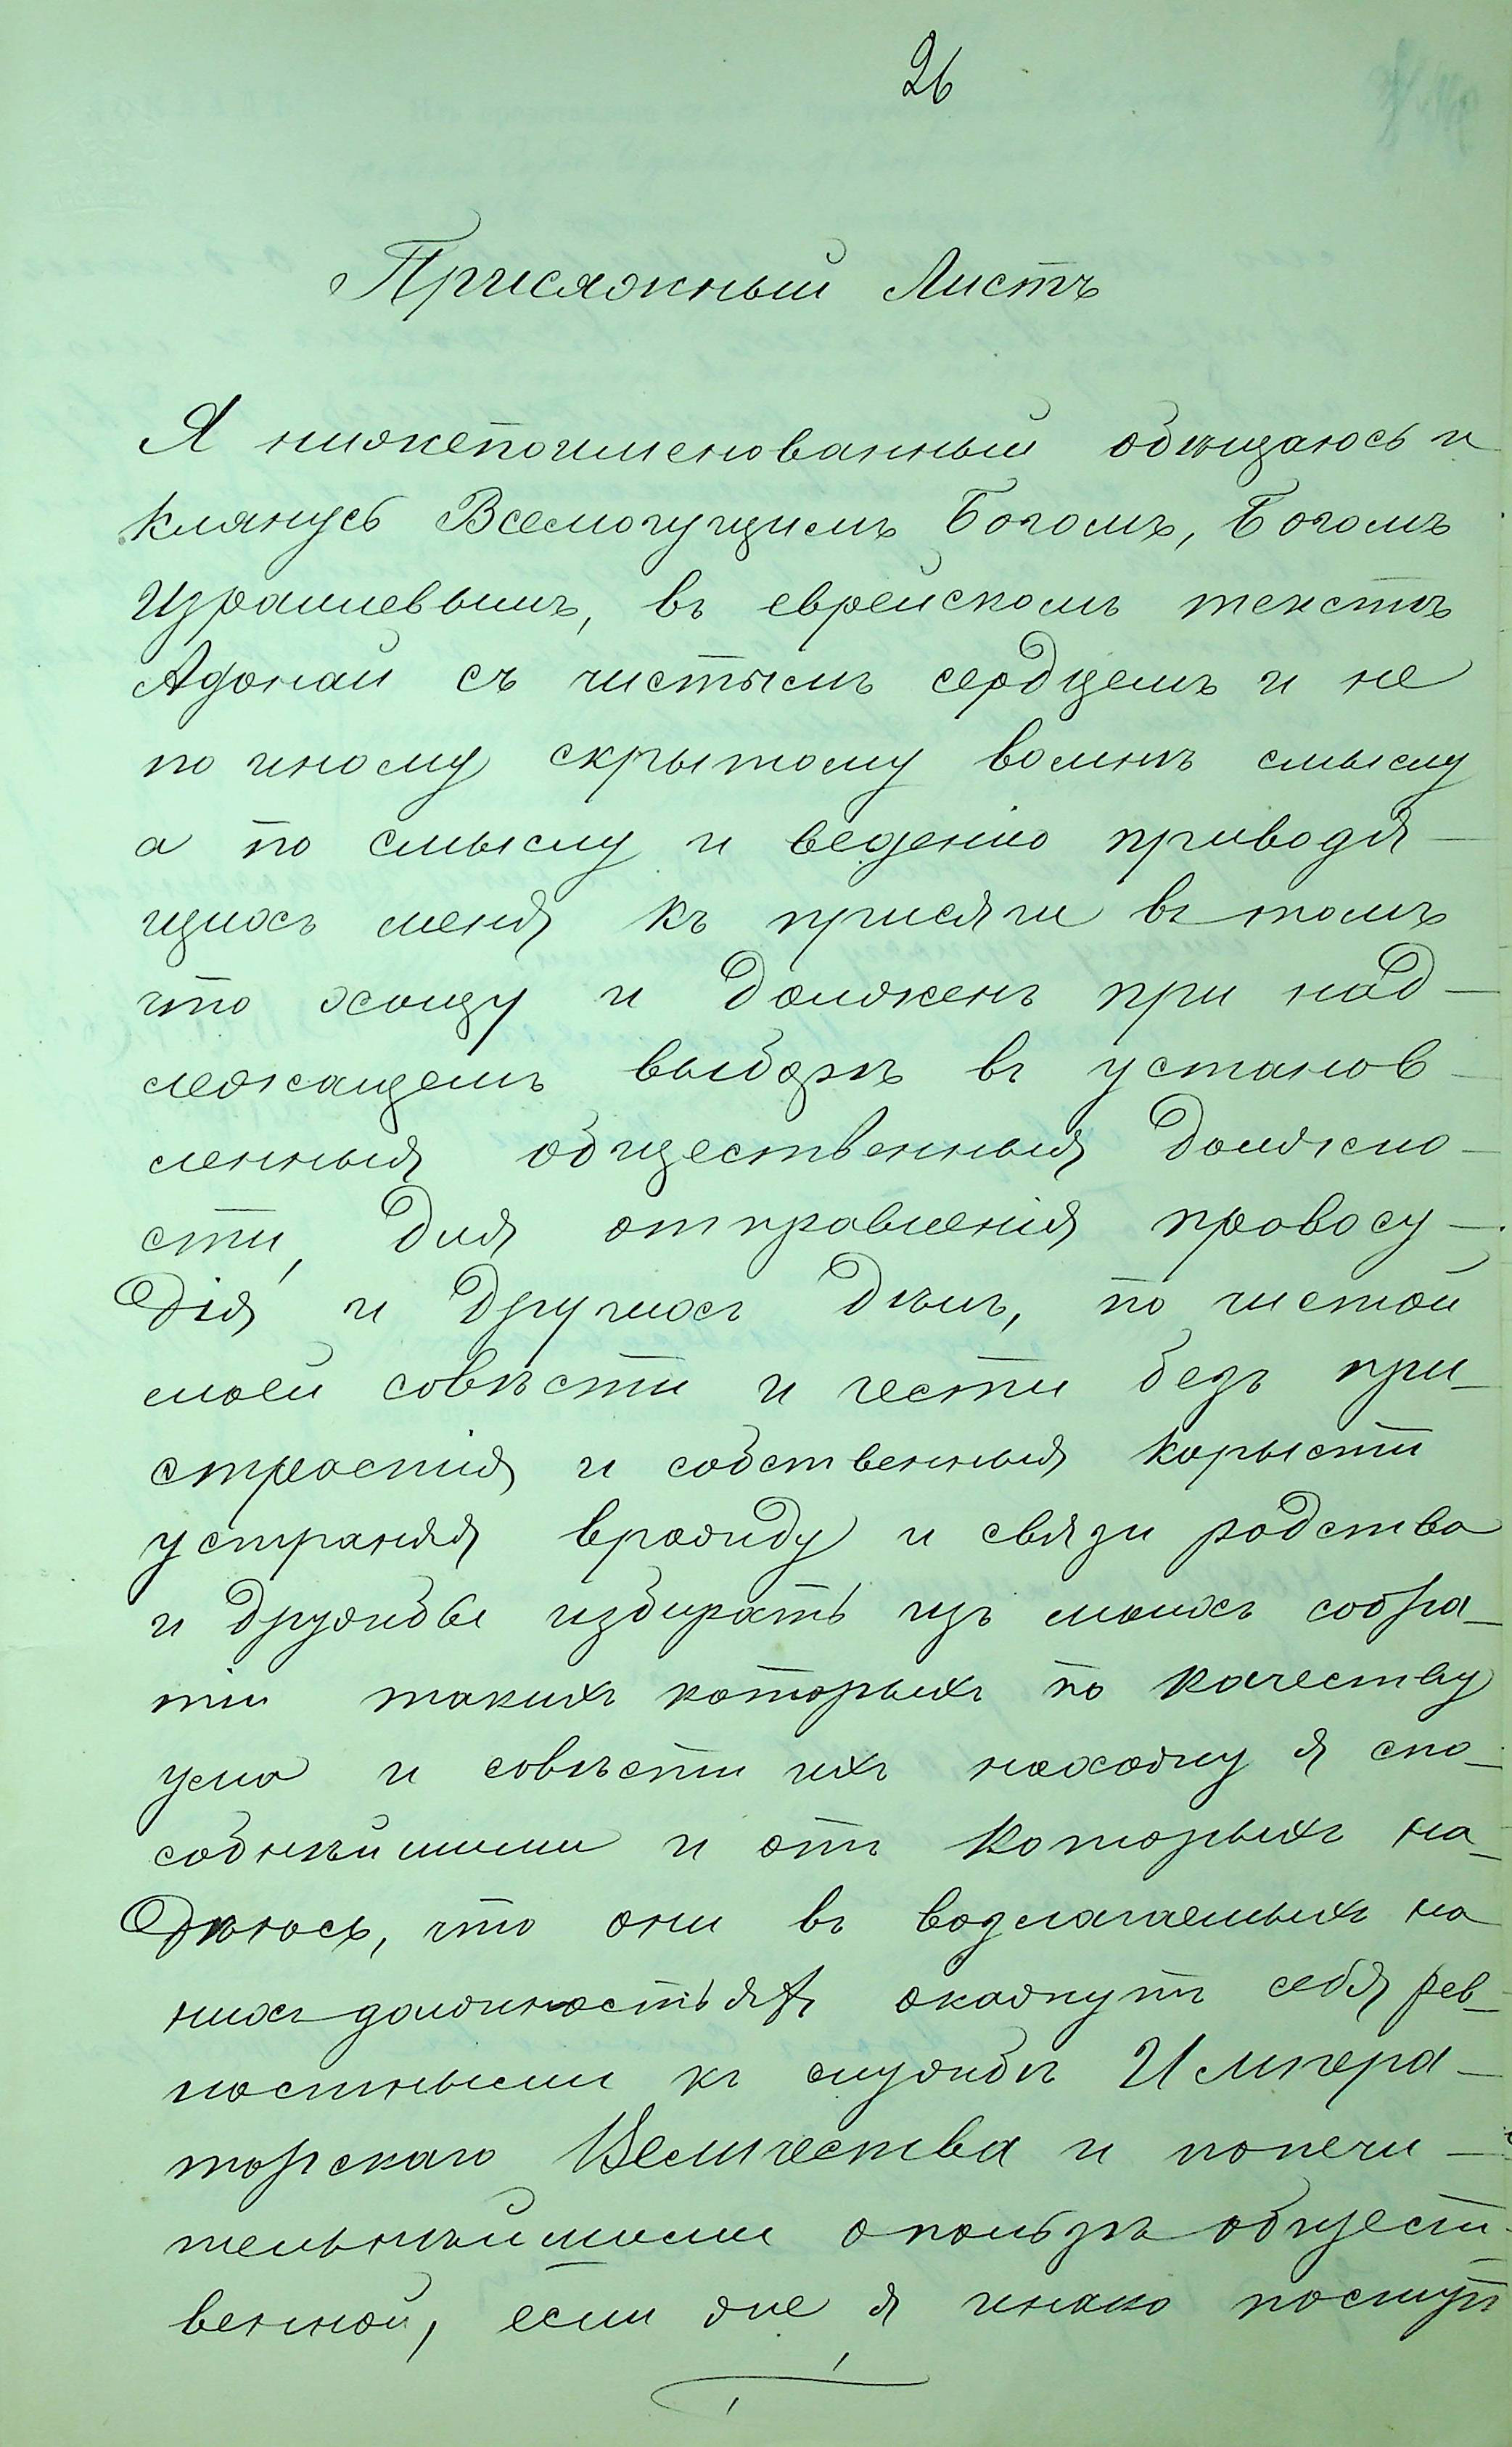 26
Присяжный Листъ
Я нижепоименованный обѣщаюсь и
клянусь Всемогущимъ Богомъ, Богомъ
Израилевымъ, въ еврейскомъ текстѣ
Адонаи съ чистымъ сердцемъ и не
по иному скрытому вомнѣ смыслу
а по смыслу и веденію приводя-
щихъ меня къ присяги въ томъ
что хощу и долженъ при над-
лежащемъ выборѣ въ установ-
ленныя общественныя должно-
сти, для отправленія правосу-
дія и другихъ дѣлъ, по чистой
моей совѣсти и чести безъ при-
страстія и собственныя корысти
устраняя вражду и связи родства
и дружбы избирать изъ моихъ собра-
тіи такихъ которыхъ по качеству
ума и совѣсти ихъ нахожу я спо-
собнѣйшими и отъ которыхъ на-
дѣюсь, что они въ возлагаемыхъ на
нихъ должностьяхъ окажутъ себя рев-
ностными къ службѣ Импера-
торскаго Величества и попечи-
тельнѣйшими о пользѣ общест-
венной, если же я инако поступ